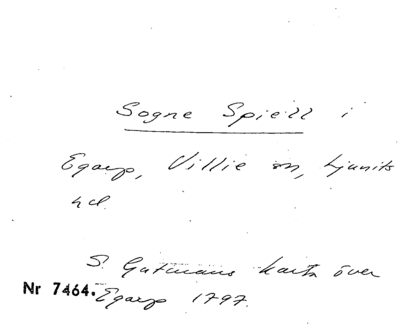 Sogne Spiell i
Egarp, Villie sn, Ljunits
hd.
S. Gutmans karta över
Nr 7464. Egarp 1797.